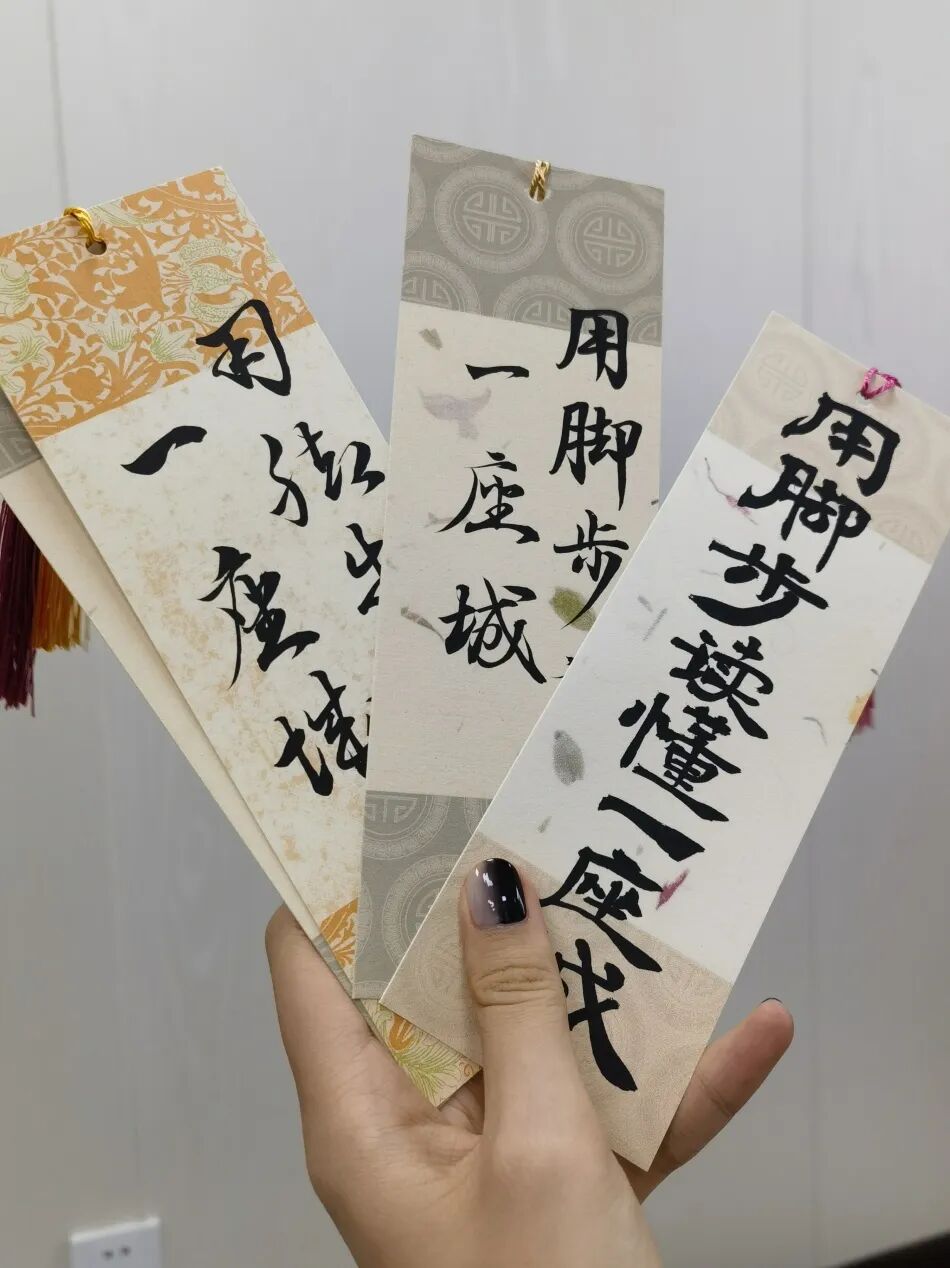 用脚步
一座城
用脚步
一座城
用脚步读懂一座城